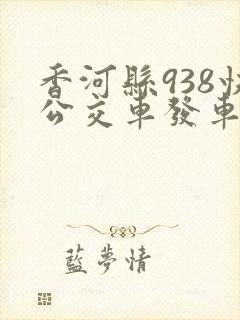 香河縣938快
公交車發車
藍夢情